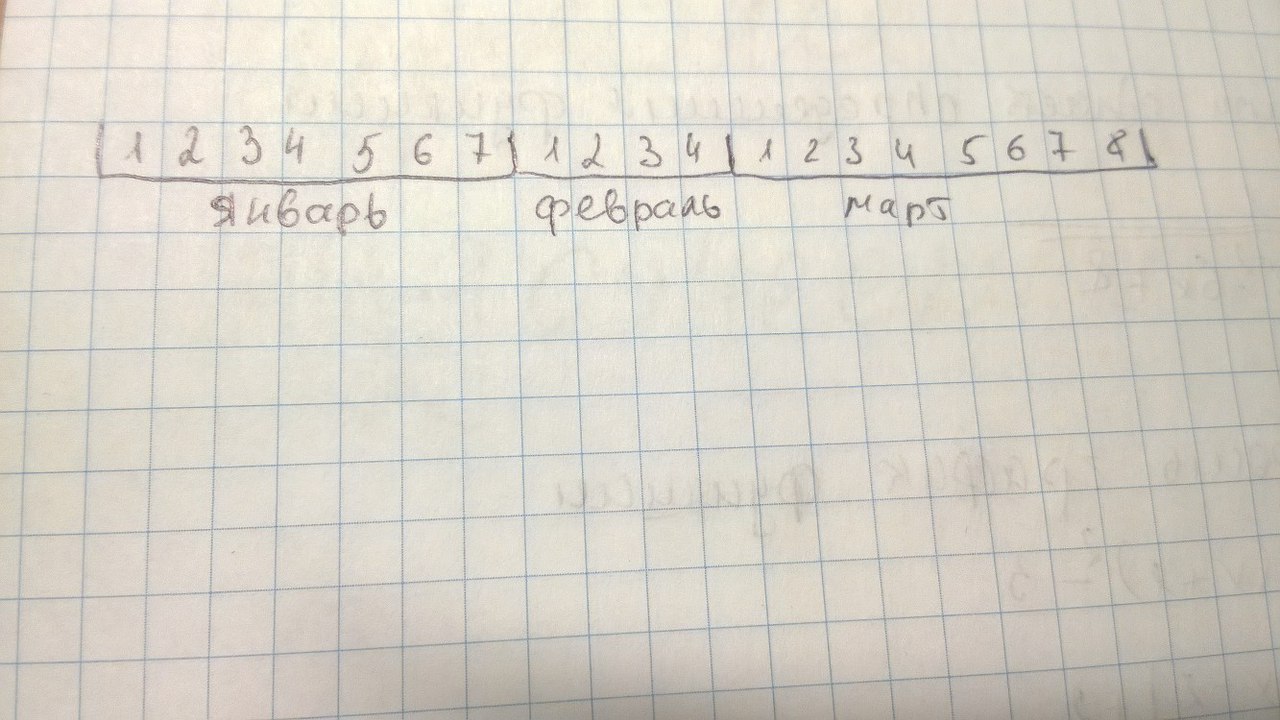 1 2 3 4 5 6 7 1 2 3 4 1 2 3 4 5 6 7 8
январь февраль март